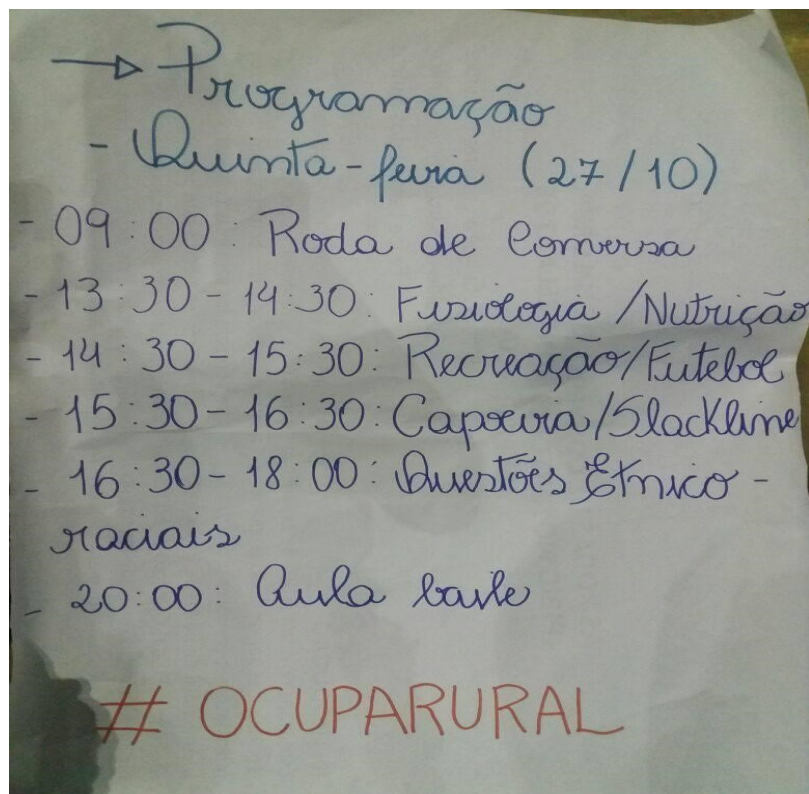 → Programação
- Quinta-feira (27/10)
- 09:00: Roda de Conversa
- 13:30 - 14:30: Fisiologia / Nutrição
- 14:30 - 15:30: Recreação/Futebol
- 15:30 - 16:30: Capoeira/Slackline
- 16:30 - 18:00: Questões Étnico-
raciais
- 20:00: Aula baile
# OCUPARURAL